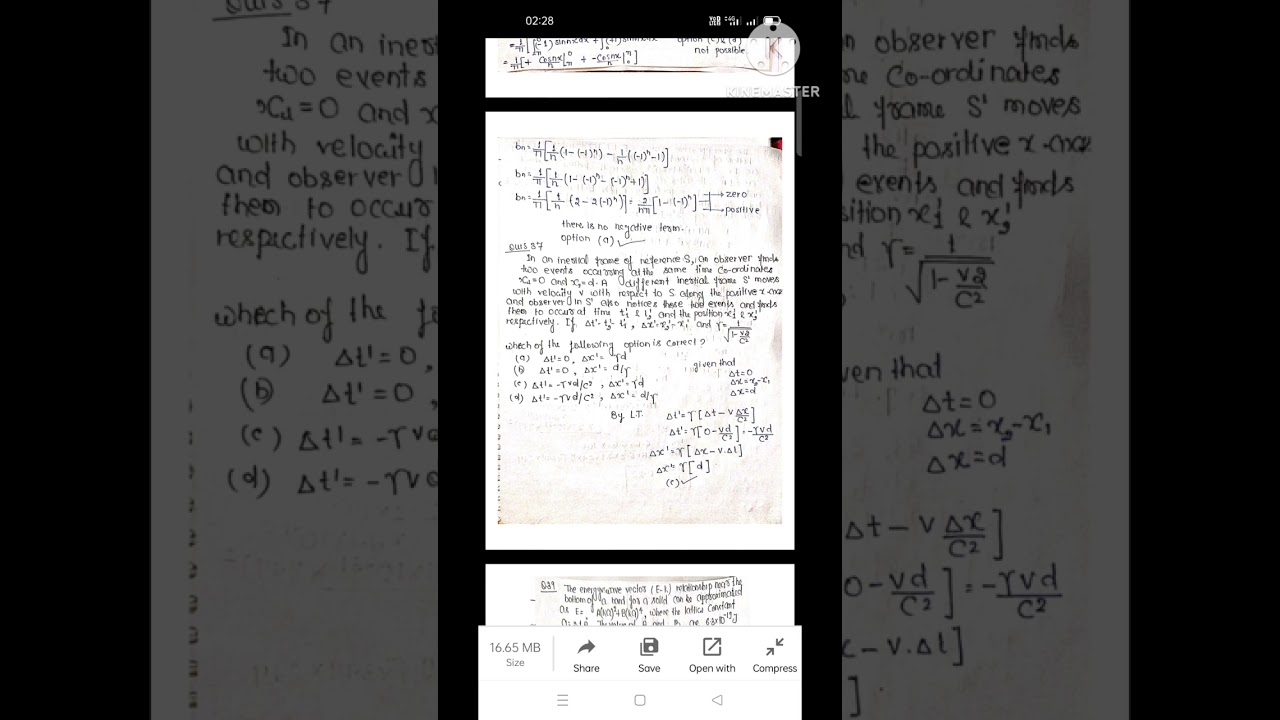 02:28
KINEMASTER
option (c) & (d)
not possible
bn = 1/π [1/n (1-(-1)^n) - 1/n ((-1)^n - 1)]
bn = 1/π [1/n (1-(-1)^n - (-1)^n + 1)]
bn = 1/π [1/n (2 - 2(-1)^n)] = 2/nπ [1-(-1)^n] → zero
→ positive
there is no negative term.
option (a) ✓
Ques 37
In an inertial frame of reference S, an observer finds
two events occurring at the same time Co-ordinates
x₁=0 and x₂=d. A different inertial frame S' moves
with velocity v with respect to S along the positive x-axis
and observer in S' also notices these two events and finds
them to occur at time t₁' & t₂' and the position x₁' & x₂'
respectively. If Δt'=t₂'-t₁', Δx'=x₂'-x₁' and γ=1/√(1-v2/c²)
which of the following option is correct?
(a) Δt'=0, Δx'=γd
(b) Δt'=0, Δx'=d/γ
(c) Δt'=-γvd/c², Δx'=γd
(d) Δt'=-γvd/c², Δx'=d/γ
given that
Δt=0
Δx=x₂-x₁
Δx=d
By L.T. Δt'=γ[Δt-vΔx/c²]
Δt'=γ[0-vd/c²]=-γvd/c²
Δx'=γ[Δx-v.Δt]
Δx'=γ[d]
(c) ✓
Q39 The energy-wave vector (E-k) relationship near the
bottom of a band for a solid can be approximated
as E= A(ka)²+B(ka)⁴, where the lattice constant
16.65 MB
Size
Share
Save
Open with
Compress